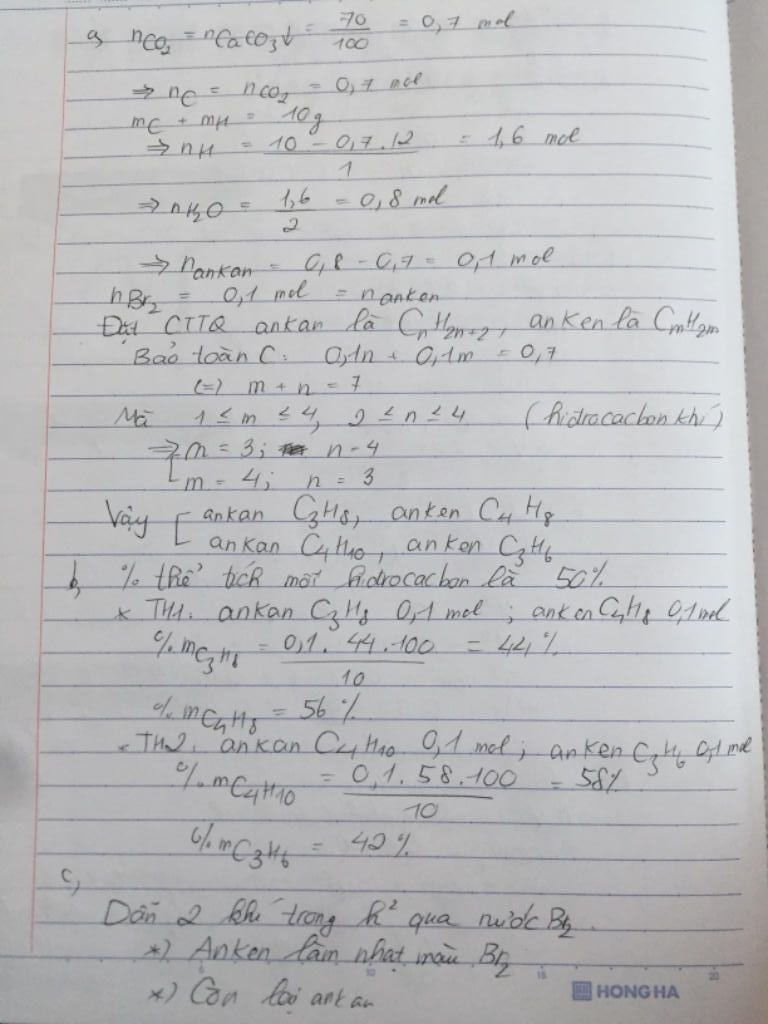 a, nCO2 = nCaCO3↓ = 70/100 = 0,7 mol
=> nC = nCO2 = 0,7 mol
mC + mH = 10g
=> nH = (10 - 0,7.12)/1 = 1,6 mol
=> nH2O = 1,6/2 = 0,8 mol
=> nankan = 0,8 - 0,7 = 0,1 mol
nBr2 = 0,1 mol = nanken
Đặt CTTQ ankan là CnH2n+2, anken là CmH2m
Bảo toàn C: 0,1n + 0,1m = 0,7
(=) m + n = 7
Mà 1 ≤ m ≤ 4, 2 ≤ n ≤ 4 (hiđrocacbon khí)
=> [m = 3; n - 4
[m = 4; n = 3
Vậy [ankan C3H8, anken C4H8
[ankan C4H10, anken C3H6
b, % thể tích mỗi hiđrocacbon là 50%
* TH1: ankan C3H8 0,1 mol; anken C4H8 0,1 mol
%mC3H8 = 0,1.44.100/10 = 44%
%mC4H8 = 56%
* TH2: ankan C4H10 0,1 mol; anken C3H6 0,1 mol
%mC4H10 = 0,1.58.100/10 = 58%
%mC3H6 = 42%
c,
Dẫn 2 khí trong h² qua nước Br2
*) Anken làm nhạt màu Br2
*) Còn lại ankan
5 10 15 20
HONG HA